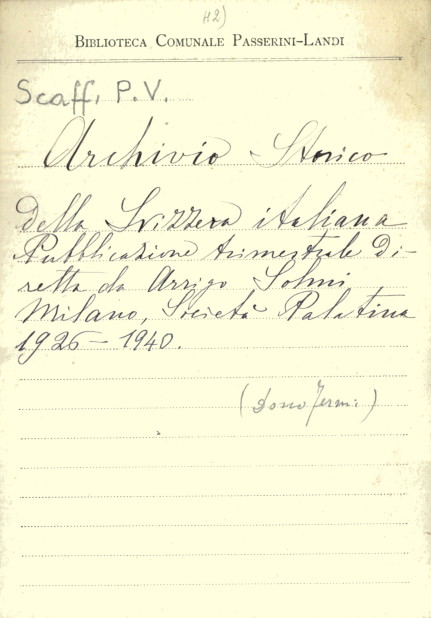 42)
BIBLIOTECA COMUNALE PASSERINI-LANDI
Scaff. P.V.
Archivio Storico
della Svizzera italiana
Pubblicazione trimestrale di-
retta da Arrigo Solmi
Milano, Società Palatina
1926 - 1940.
(dono Fermi)